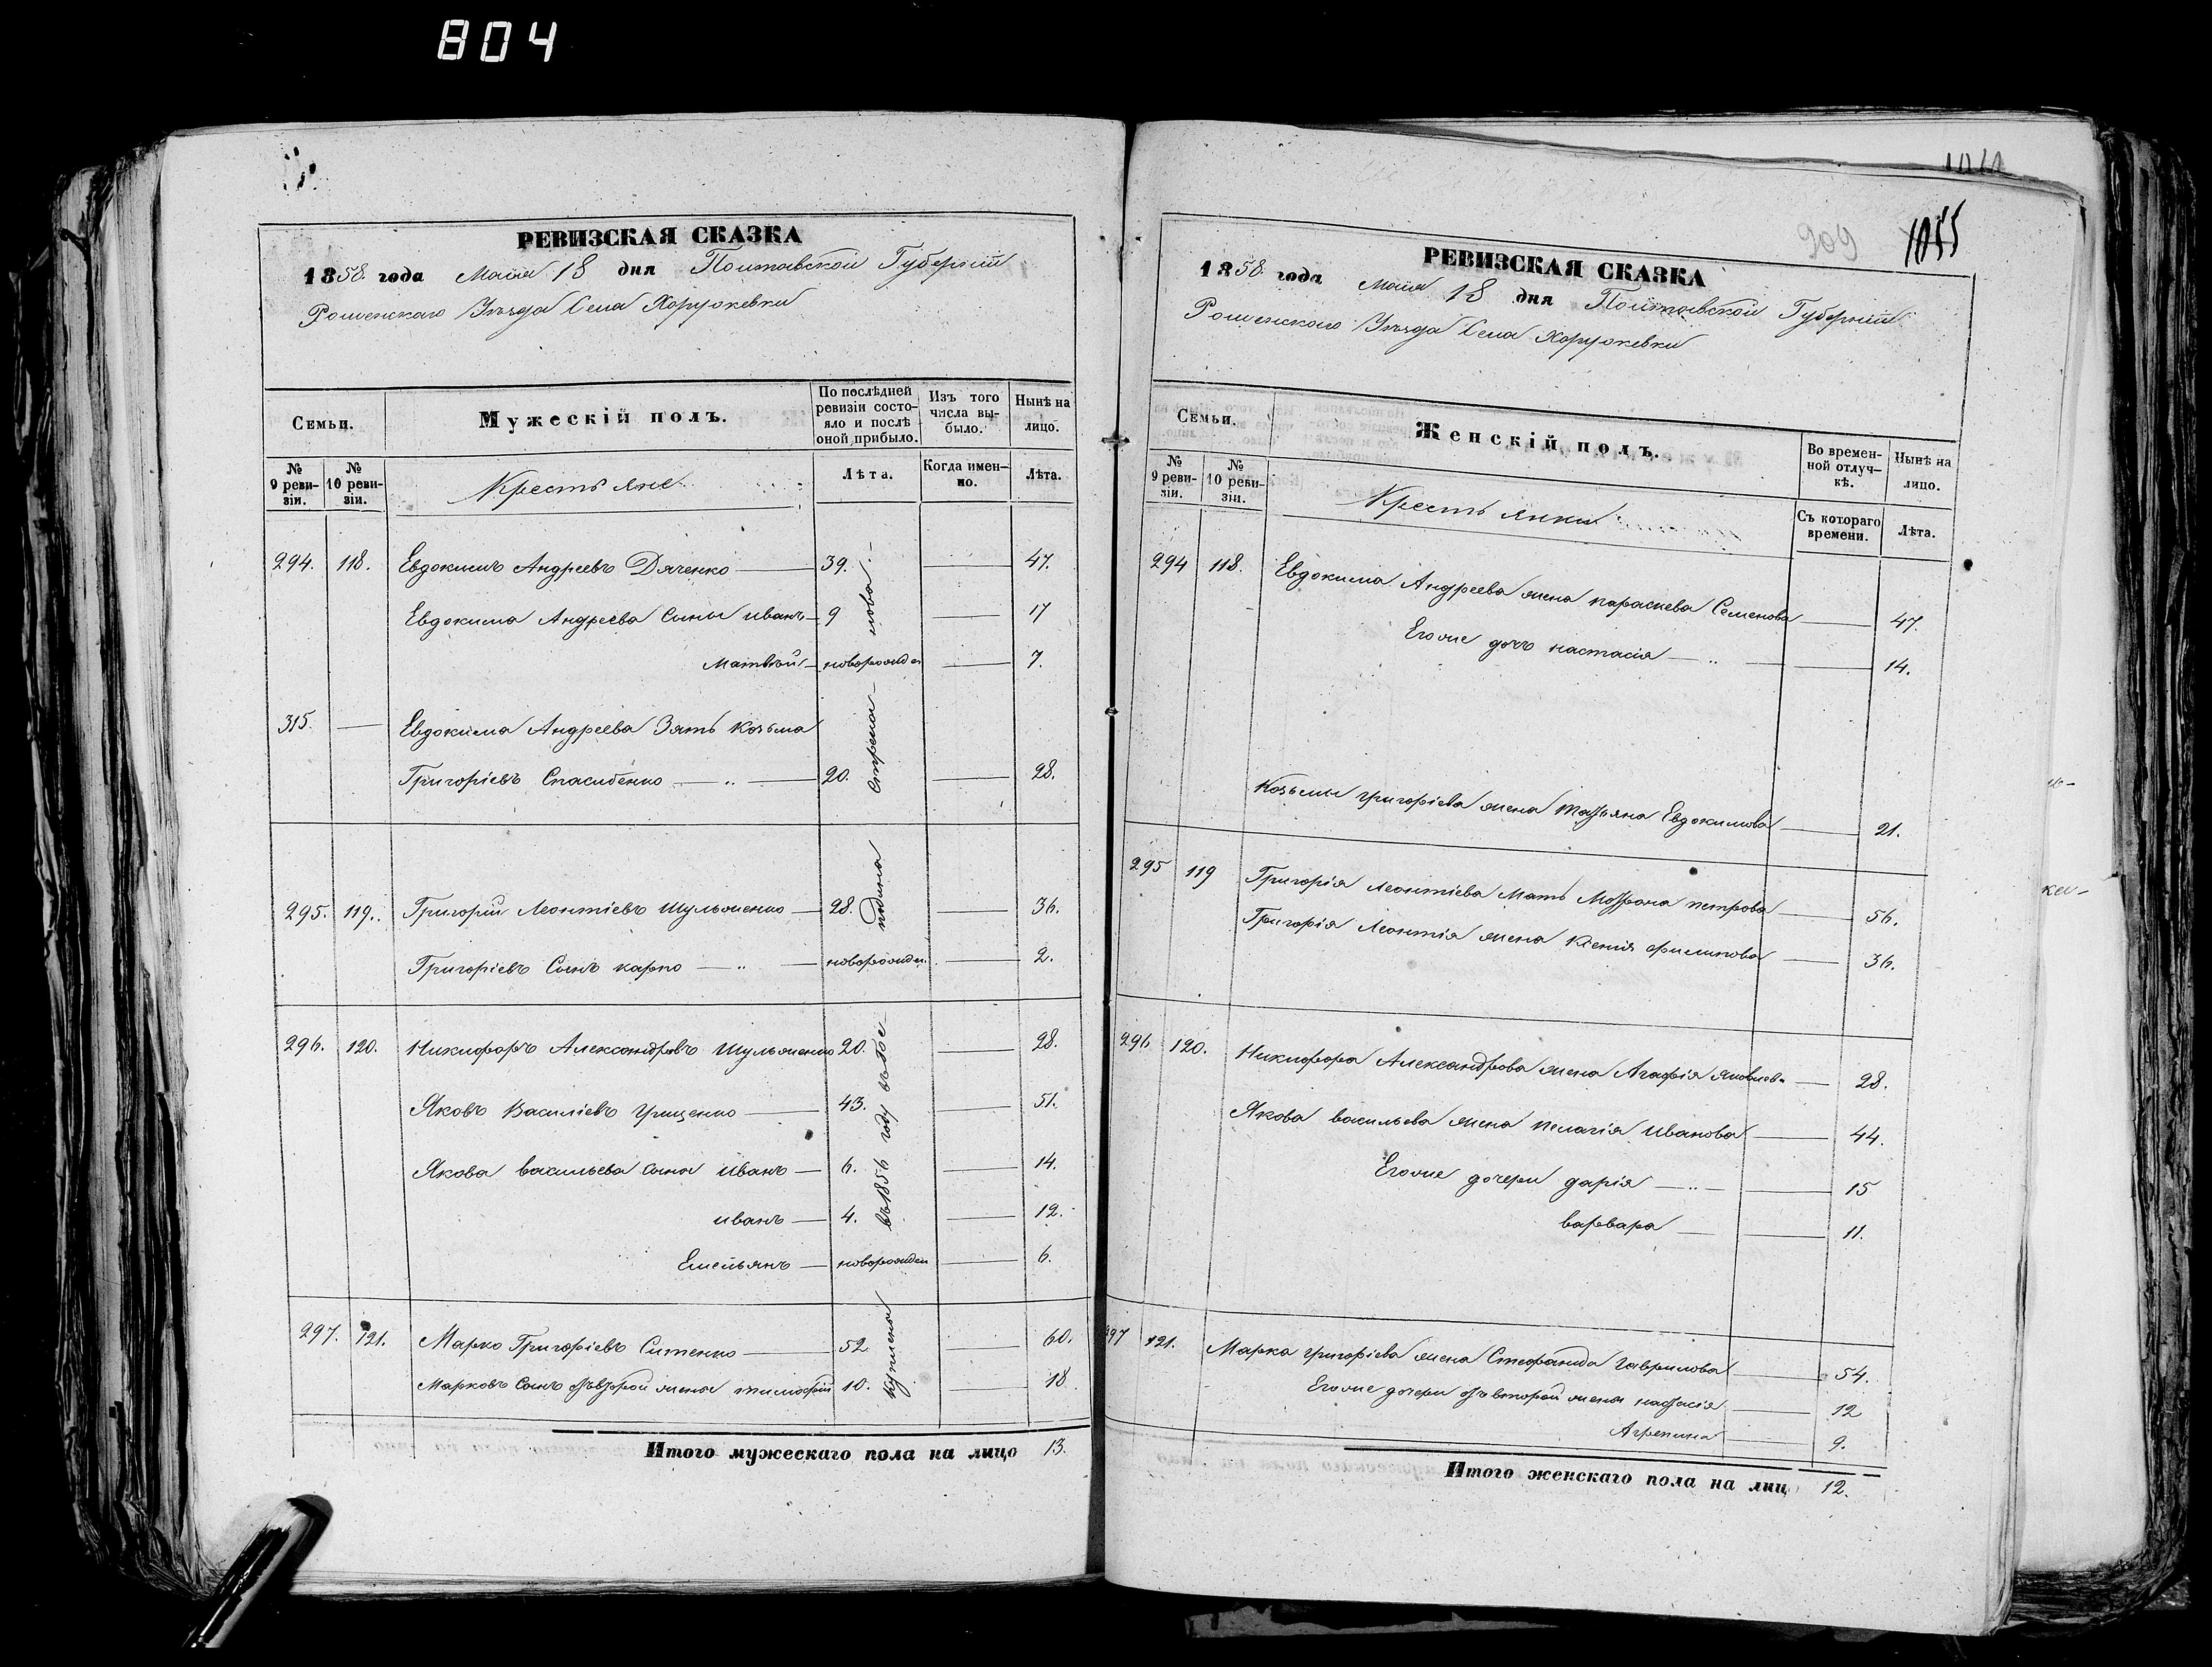 804
РЕВИЗСКАЯ СКАЗКА
1858 года Маія 18 дня Полтавской Губерніи
Роменскаго Уѣзда Села Хоружевки
Семьи.
Мужескій полъ.
По послѣдней ревизіи состо-
яло и послѣ оной прибыло.
Изъ того числа вы-
было.
Нынѣ на лицо.
№ 9 реви-
зіи.
№ 10 реви-
зіи.
Крестьяне
Лѣта.
Когда имен-
но.
Лѣта.
294. 118. Евдокимъ Андреевъ Дяченко 39. 47.
Евдокима Андреева Сыны иванъ 9 17
Матвѣй новорожден 7.
315. Евдокима Андреева Зять Козьма
Григоріевъ Спасибенко 20. 28.
295. 119. Григорій Леонтіевъ Шульженко 28. 36.
Григоріевъ Сынъ карпо новорожден. 2.
296. 120. Никифоръ Александровъ Шульженко 20. 28.
Яковъ Василіевъ Грищенко 43. 51.
Якова васильева сыны иванъ 6. 14.
иванъ 4. 12.
Емельянъ новорожден 6.
297. 121. Марко Григоріевъ Ситенко 52 60.
Марковъ Сынъ отъ второй жены тимофій 10. 18
куплены въ 1856 году
Итого мужескаго пола на лицо 13.
909
1055
РЕВИЗСКАЯ СКАЗКА
1858 года Маія 18 дня Полтавской Губерніи
Роменскаго Уѣзда Села Хоружевки
Семьи.
Женскій полъ.
Во времен-
ной отлуч-
кѣ.
Нынѣ на лицо.
№ 9 реви-
зіи.
№ 10 реви-
зіи.
Крестьянки
Съ котораго времени.
Лѣта.
294 118. Евдокима Андреева жена параскева Семенова 47.
Его же дочь настасія 14.
Козьмы григоріева жена татьяна Евдокимова 21.
295 119 Григорія леонтіева Мать Мотрона петрова 56.
Григорія Леонтія жена Ксенія филипова 36.
296 120. Никифора Александрова жена Агафія Яковлев. 28.
Якова васильева жена пелагія иванова 44.
Его же дочери дарія 15
варвара 11.
297 121. Марка григоріева жена Стефанида гаврилова 54.
Его же дочери отъ второй жены настасія 12
Агрепина 9.
Итого женскаго пола на лиц 12.